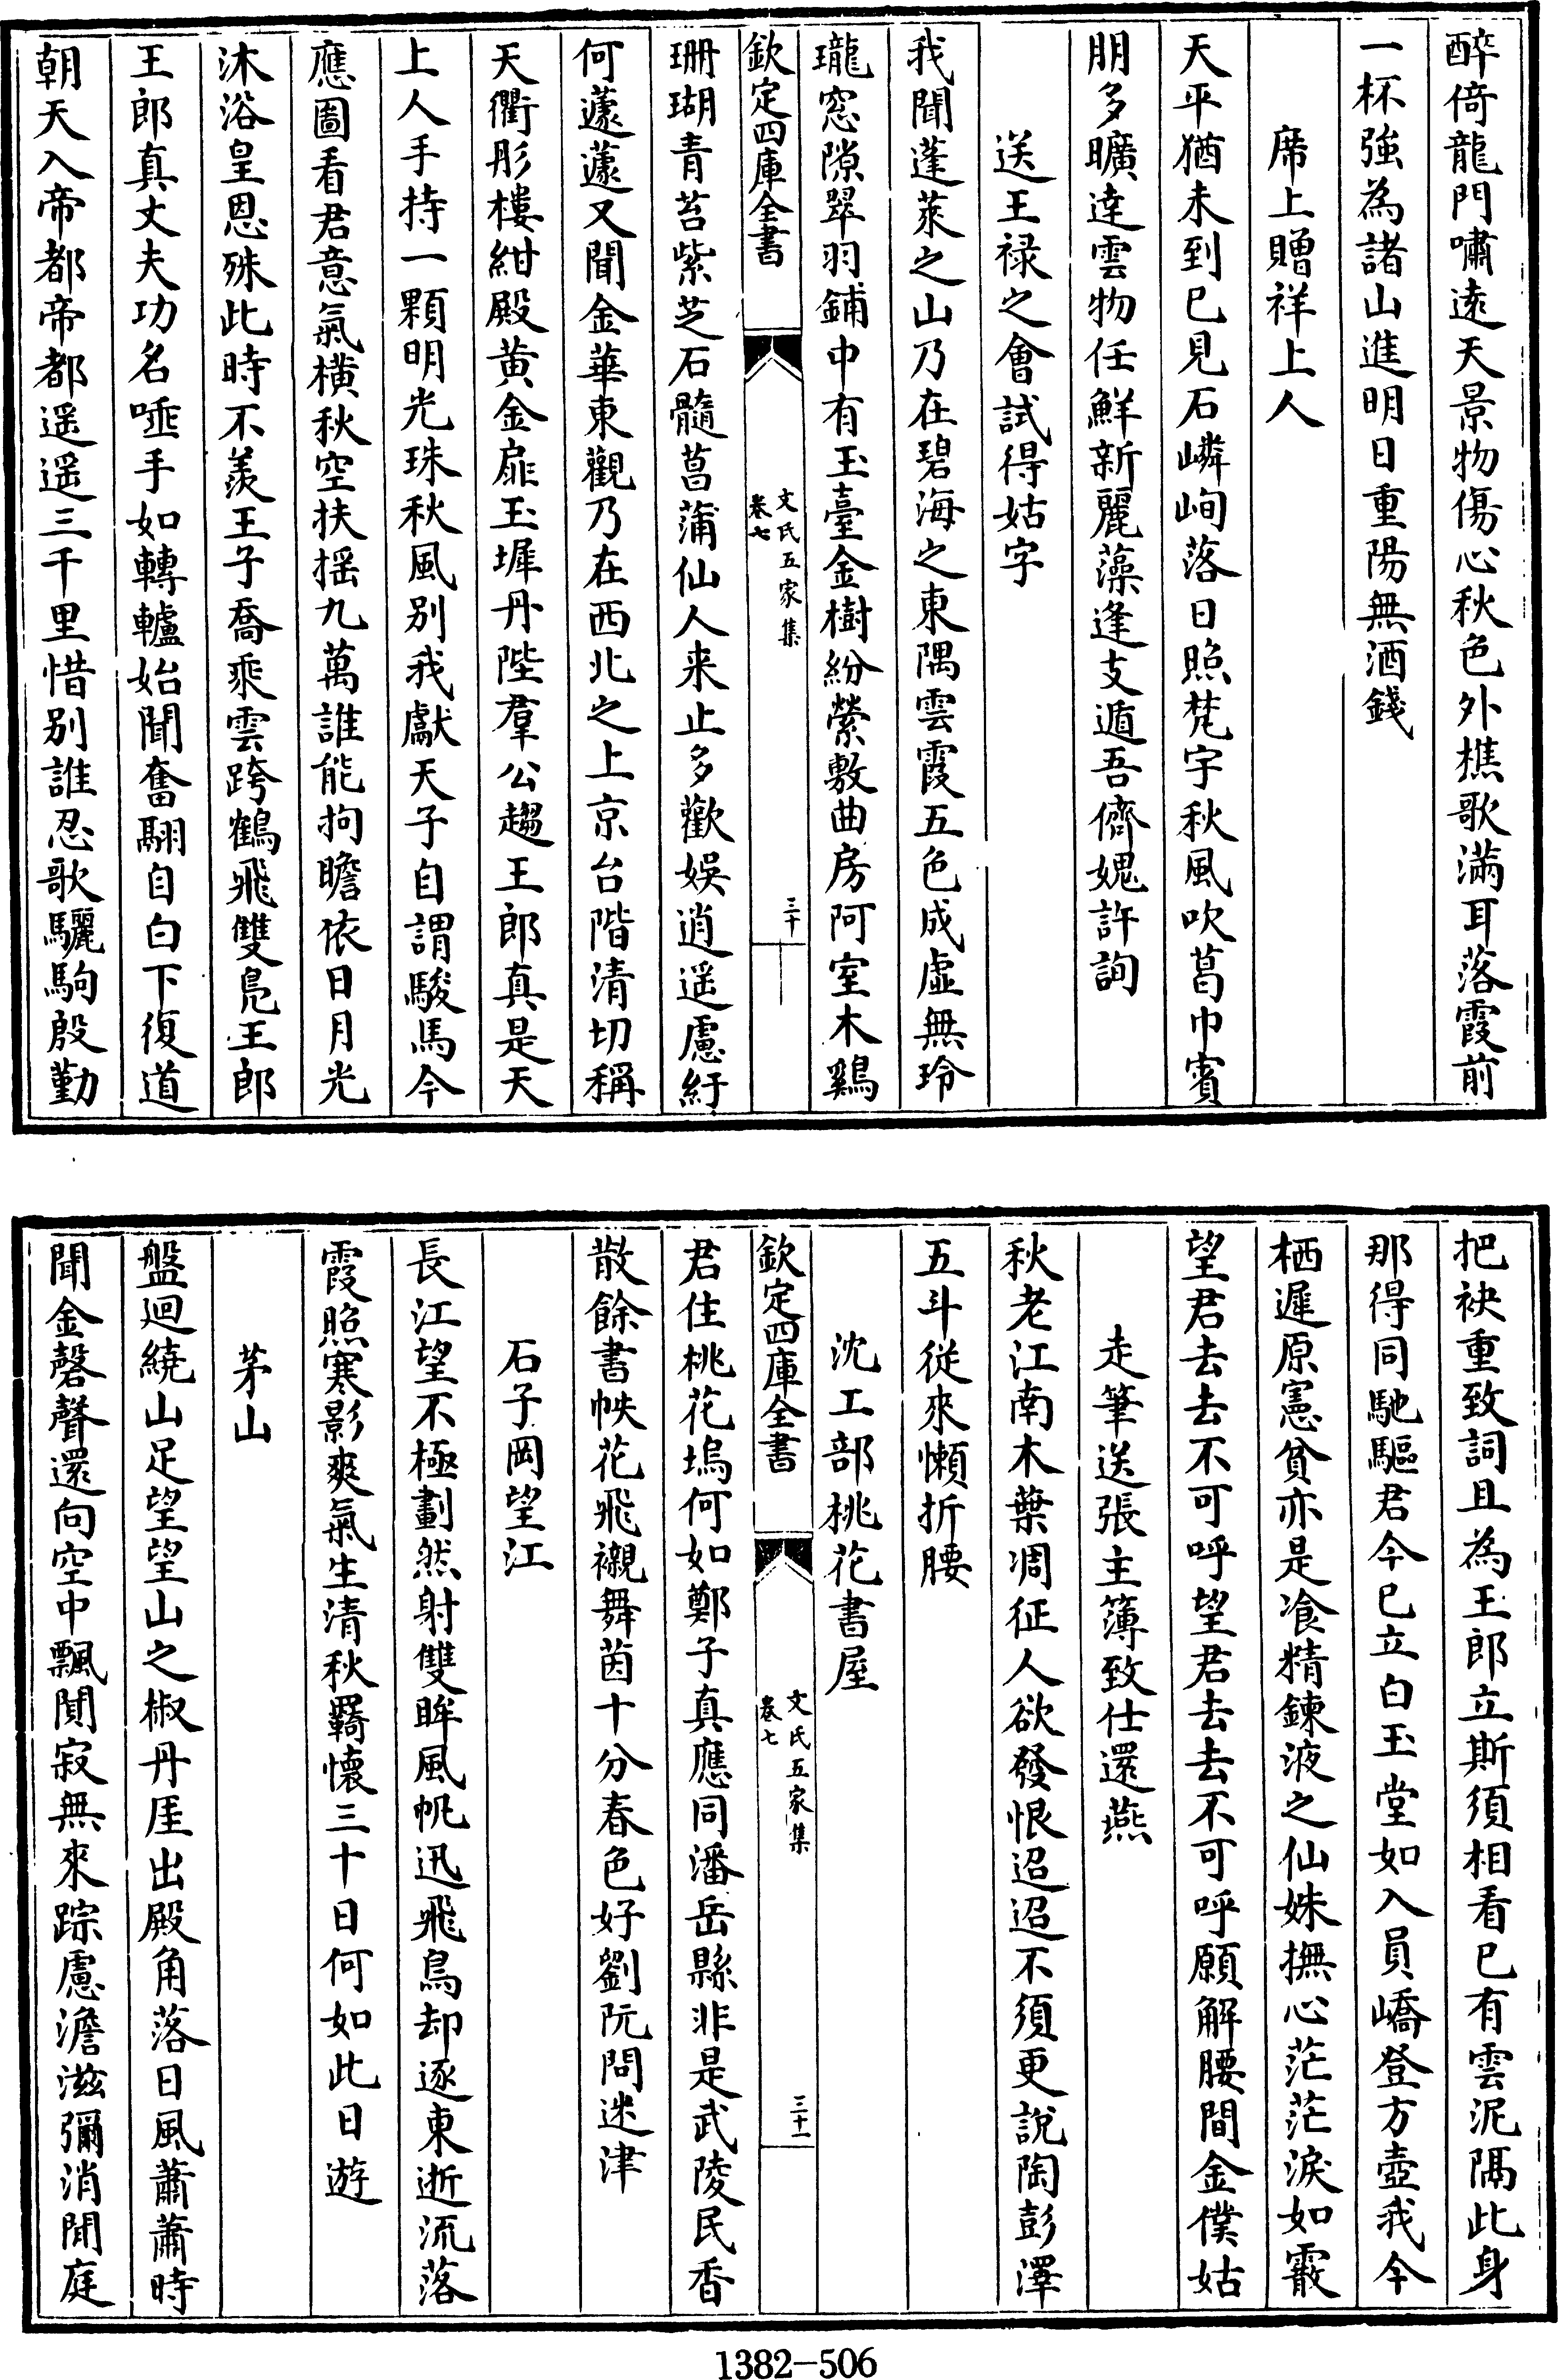 醉倚龍門嘯遠天景物傷心秋色外樵歌滿耳落霞前
一杯強為諸山進明日重陽無酒錢
席上贈祥上人
天平猶未到已見石嶙峋落日照梵宇秋風吹葛巾賓
朋多曠達雲物任鮮新麗藻逢支遁吾儕媿許詢
送王祿之會試得姑字
我聞蓬萊之山乃在碧海之東隅雲霞五色成虛無玲
瓏窓隙翠羽鋪中有玉臺金樹紛縈敷曲房阿室木鷄
欽定四庫全書
文氏五家集
卷七
三十
珊瑚青苔紫芝石髓菖蒲仙人来止多歡娛逍遥慮紆
何蘧蘧又聞金華東觀乃在西北之上京台階清切稱
天衢彤樓紺殿黄金扉玉墀丹陛羣公趨王郎真是天
上人手持一顆明光珠秋風别我獻天子自謂駿馬今
應圖看君意氣横秋空扶揺九萬誰能拘瞻依日月光
沐浴皇恩殊此時不羨王子喬乘雲跨鶴飛雙鳧王郎
王郎真丈夫功名唾手如轉轤始聞奮翮自白下復道
朝天入帝都帝都遥遥三千里惜别誰忍歌驪駒殷勤
把袂重致詞且為王郎立斯須相看已有雲泥隔此身
那得同馳驅君今已立白玉堂如入員嶠登方壺我今
栖遲原憲貧亦是飡精鍊液之仙姝撫心茫茫淚如霰
望君去去不可呼望君去去不可呼願解腰間金僕姑
走筆送張主簿致仕還燕
秋老江南木葉凋征人欲發恨迢迢不須更說陶彭澤
五斗從來懶折腰
沈工部桃花書屋
欽定四庫全書
文氏五家集
卷七
三十一
君住桃花塢何如鄭子真應同潘岳縣非是武陵民香
散餘書帙花飛襯舞茵十分春色好劉阮問迷津
石子岡望江
長江望不極劃然射雙眸風帆迅飛鳥却逐東逝流落
霞照寒影爽氣生清秋羇懷三十日何如此日遊
茅山
盤迴繞山足望望山之椒丹厓出殿角落日風蕭蕭時
聞金磬聲還向空中飄閴寂無來踪慮澹滋彌消閒庭
1382-506